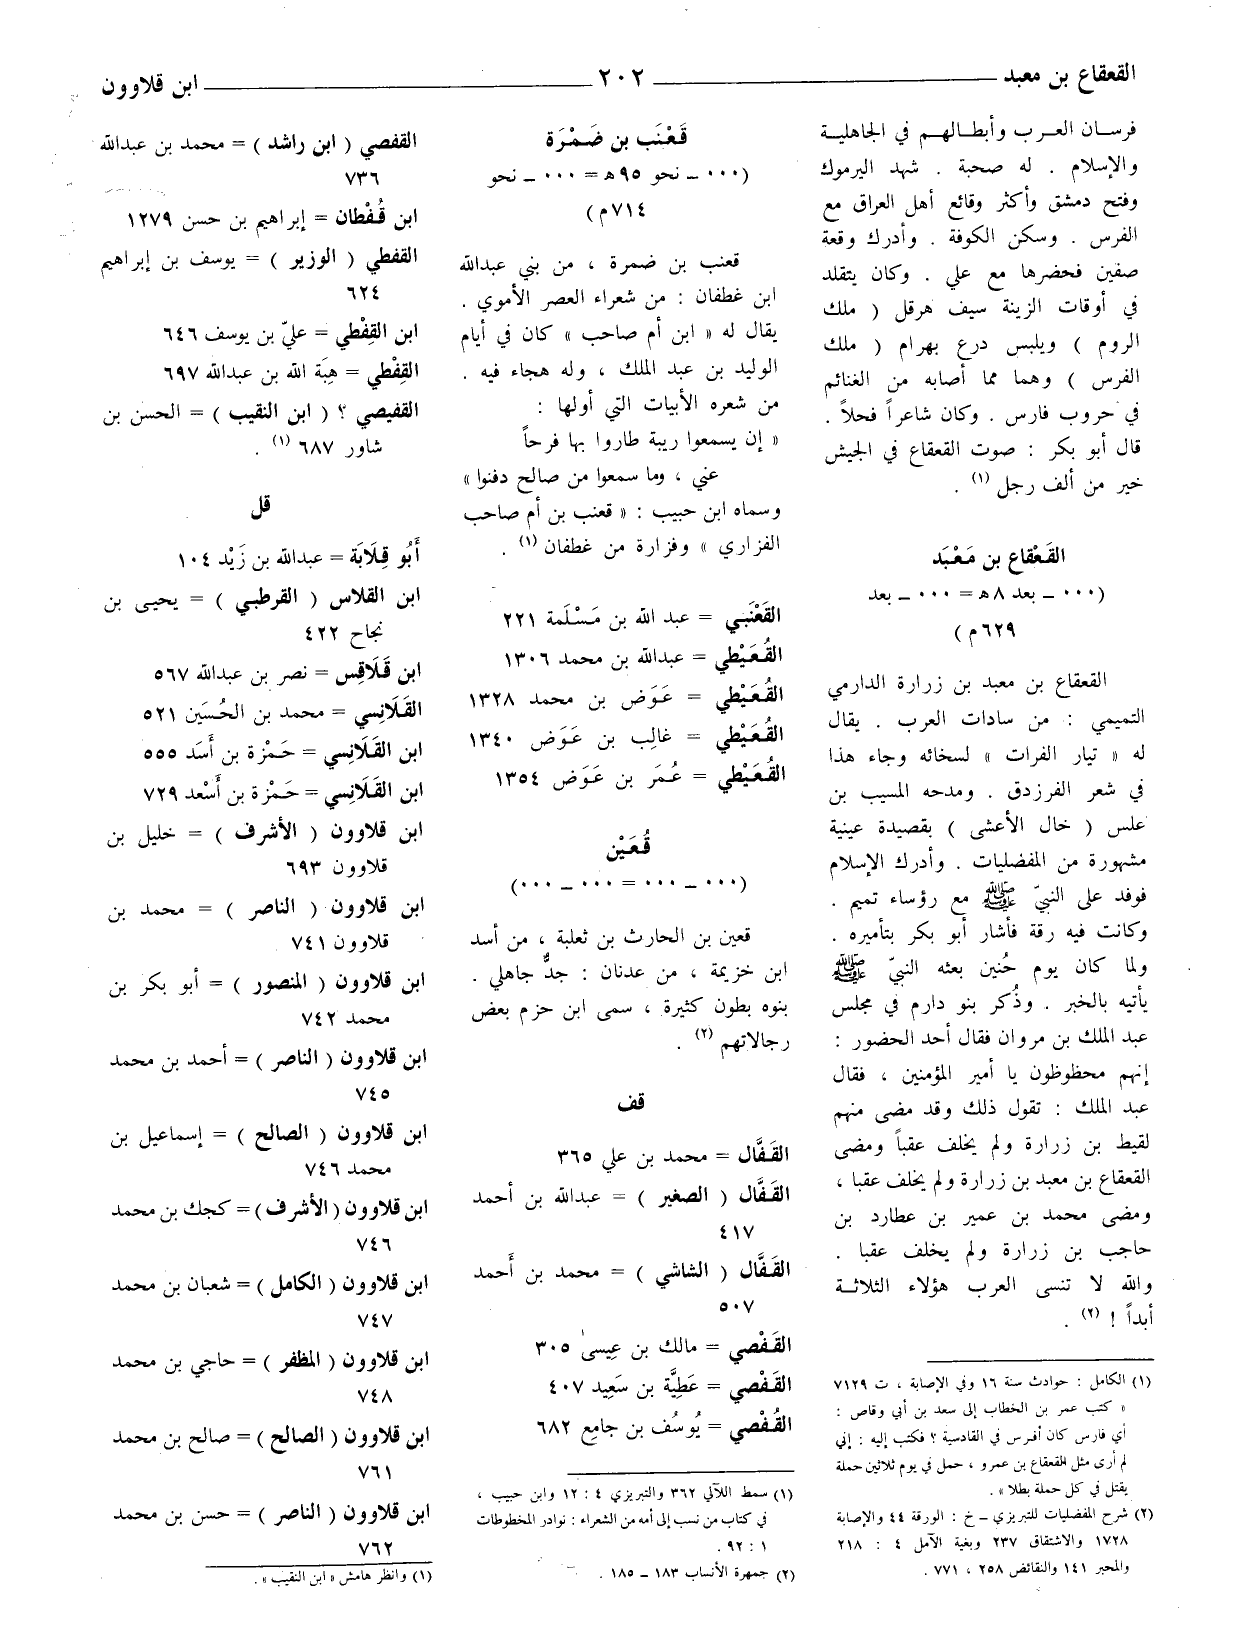 القعقاع بن معبد ــــــ ٢٠٢ ــــــ ابن قلاوون
فرسان العرب وأبطالهم في الجاهلية
والإسلام . له صحبة . شهد اليرموك
وفتح دمشق وأكثر وقائع أهل العراق مع
الفرس . وسكن الكوفة . وأدرك وقعة
صفين فحضرها مع علي . وكان يتقلد
في أوقات الزينة سيف هرقل ( ملك
الروم ) ويلبس درع بهرام ( ملك
الفرس ) وهما مما أصابه من الغنائم
في حروب فارس . وكان شاعراً فحلاً .
قال أبو بكر : صوت القعقاع في الجيش
خير من ألف رجل (١) .
القَعْقاع بن مَعْبَد
(٠٠٠ ــ بعد ٨ هـ = ٠٠٠ ــ بعد
٦٢٩ م)
القعقاع بن معبد بن زرارة الدارمي
التميمي : من سادات العرب . يقال
له « تيار الفرات » لسخائه وجاء هذا
في شعر الفرزدق . ومدحه المسيب بن
علس ( خال الأعشى ) بقصيدة عينية
مشهورة من المفضليات . وأدرك الإسلام
فوفد على النبيّ ﷺ مع رؤساء تميم .
وكانت فيه رقة فأشار أبو بكر بتأميره .
ولما كان يوم حُنين بعثه النبيّ ﷺ
يأتيه بالخبر . وذُكر بنو دارم في مجلس
عبد الملك بن مروان فقال أحد الحضور :
إنهم محظوظون يا أمير المؤمنين ، فقال
عبد الملك : تقول ذلك وقد مضى منهم
لقيط بن زرارة ولم يخلف عقباً ومضى
القعقاع بن معبد بن زرارة ولم يخلف عقبا ،
ومضى محمد بن عمير بن عطارد بن
حاجب بن زرارة ولم يخلف عقبا .
والله لا تنسى العرب هؤلاء الثلاثة
أبداً ! (٢) .
(١) الكامل : حوادث سنة ١٦ وفي الإصابة ، ت ٧١٢٩
« كتب عمر بن الخطاب إلى سعد بن أبي وقاص :
أي فارس كان أفرس في القادسية ؟ فكتب إليه : إني
لم أرى مثل القعقاع بن عمرو ، حمل في يوم ثلاثين حملة
يقتل في كل حملة بطلا » .
(٢) شرح المفضليات للتبريزي ــ خ : الورقة ٤٤ والإصابة
١٧٢٨ والاشتقاق ٢٣٧ وبغية الآمل ٤ : ٢١٨
والمحبر ١٤١ والنقائض ٢٥٨ ، ٧٧١ .
قَعْنَب بن ضَمْرَة
(٠٠٠ ــ نحو ٩٥ هـ = ٠٠٠ ــ نحو
٧١٤ م)
قعنب بن ضمرة ، من بني عبدالله
ابن غطفان : من شعراء العصر الأموي .
يقال له « ابن أم صاحب » كان في أيام
الوليد بن عبد الملك ، وله هجاء فيه .
من شعره الأبيات التي أولها :
« إن يسمعوا ريبة طاروا بها فرحاً
عني ، وما سمعوا من صالح دفنوا »
وسماه ابن حبيب : « قعنب بن أم صاحب
الفزاري » وفزارة من غطفان (١) .
القَعْنَبي = عبد الله بن مَسْلَمة ٢٢١
القُعَيْطي = عبدالله بن محمد ١٣٠٦
القُعَيْطي = عَوَض بن محمد ١٣٢٨
القُعَيْطي = غالِب بن عَوَض ١٣٤٠
القُعَيْطي = عُمَر بن عَوَض ١٣٥٤
قُعَيْن
(٠٠٠ ــ ٠٠٠ = ٠٠٠ ــ ٠٠٠)
قعين بن الحارث بن ثعلبة ، من أسد
ابن خزيمة ، من عدنان : جدٌّ جاهلي .
بنوه بطون كثيرة ، سمى ابن حزم بعض
رجالاتهم (٢) .
قف
القَفَّال = محمد بن علي ٣٦٥
القَفَّال ( الصغير ) = عبدالله بن أحمد
٤١٧
القَفَّال ( الشاشي ) = محمد بن أَحمد
٥٠٧
القَفْصي = مالك بن عِيسىٰ ٣٠٥
القَفْصي = عَطِيَّة بن سَعِيد ٤٠٧
القُفْصي = يُوسُف بن جامِع ٦٨٢
(١) سمط اللآلي ٣٦٢ والتبريزي ٤ : ١٢ وابن حبيب ،
في كتاب من نسب إلى أمه من الشعراء : نوادر المخطوطات
١ : ٩٢ .
(٢) جمهرة الأنساب ١٨٣ ــ ١٨٥ .
القفصي ( ابن راشد ) = محمد بن عبدالله
٧٣٦
ابن قُفْطان = إبراهيم بن حسن ١٢٧٩
القفطي ( الوزير ) = يوسف بن إبراهيم
٦٢٤
ابن القِفْطي = عليّ بن يوسف ٦٤٦
القِفْطي = هِبَة الله بن عبدالله ٦٩٧
القفيصي ؟ ( ابن النقيب ) = الحسن بن
شاور ٦٨٧ (١) .
قل
أَبُو قِلَابَة = عبدالله بن زَيْد ١٠٤
ابن القلاس ( القرطبي ) = يحيى بن
نجاح ٤٢٢
ابن قَلَاقِس = نصر بن عبدالله ٥٦٧
القَلَانسي = محمد بن الحُسَين ٥٢١
ابن القَلَانِسي = حَمْزة بن أَسَد ٥٥٥
ابن القَلَانِسي = حَمْزة بن أَسْعد ٧٢٩
ابن قلاوون ( الأشرف ) = خليل بن
قلاوون ٦٩٣
ابن قلاوون ( الناصر ) = محمد بن
قلاوون ٧٤١
ابن قلاوون ( المنصور ) = أبو بكر بن
محمد ٧٤٢
ابن قلاوون ( الناصر ) = أحمد بن محمد
٧٤٥
ابن قلاوون ( الصالح ) = إسماعيل بن
محمد ٧٤٦
ابن قلاوون ( الأشرف ) = كجك بن محمد
٧٤٦
ابن قلاوون ( الكامل ) = شعبان بن محمد
٧٤٧
ابن قلاوون ( المظفر ) = حاجي بن محمد
٧٤٨
ابن قلاوون ( الصالح ) = صالح بن محمد
٧٦١
ابن قلاوون ( الناصر ) = حسن بن محمد
٧٦٢
(١) وانظر هامش « ابن النقيب » .